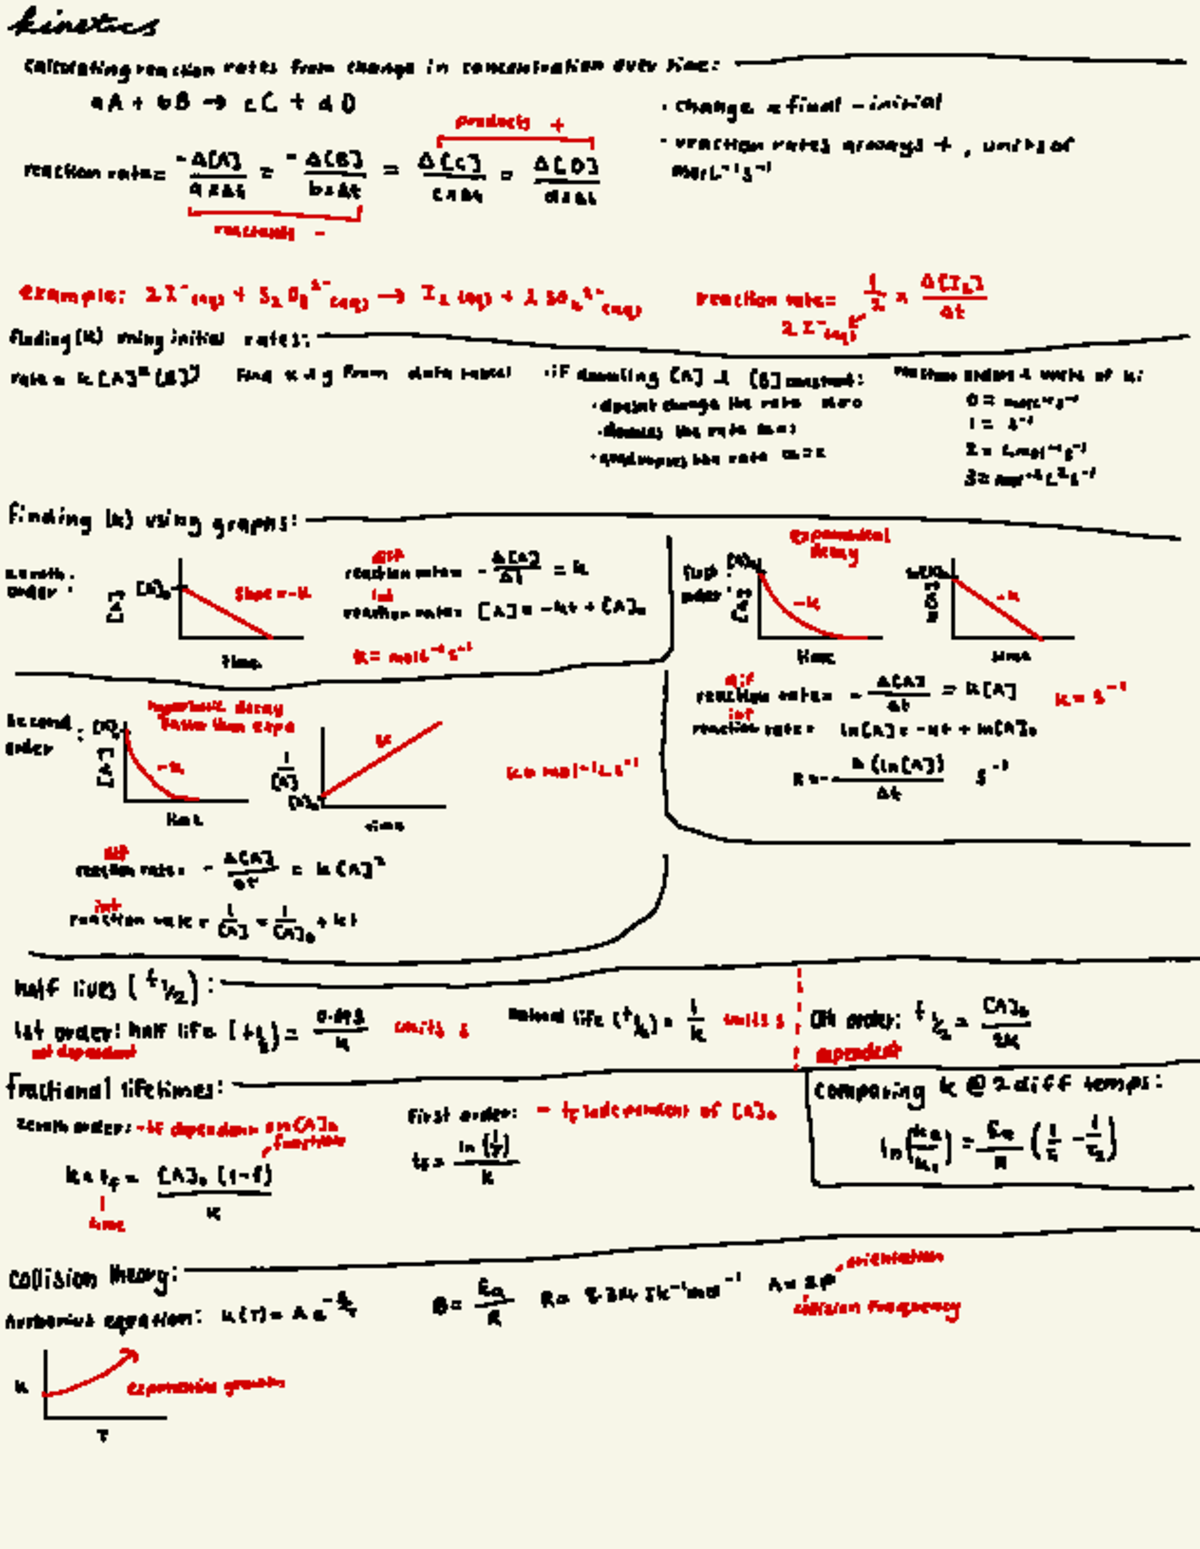 kinetics
calculating reaction rates from change in concentration over time:
aA + bB → cC + dD
• change = final - initial
products +
• reaction rates always +, units of
molL⁻¹s⁻¹
reaction rate = -Δ[A]/axΔt = -Δ[B]/bxΔt = Δ[C]/cxΔt = Δ[D]/dxΔt
reactants -
example: 2I⁻(aq) + S₂O₈²⁻(aq) → I₂(aq) + 2SO₄²⁻(aq)
reaction rate = 1/2 x Δ[I₂]/Δt
2I⁻(aq)
finding (k) using initial rates:
rate = k[A]ˣ[B]ʸ
find x & y from data table!
• if doubling [A] & [B] constant:
• doesnt change the rate zero
• doubles the rate
• quadruples the rate
reaction orders & units of k:
0 = molL⁻¹s⁻¹
1 = s⁻¹
2 = Lmol⁻¹s⁻¹
3 = mol⁻²L²s⁻¹
finding (k) using graphs:
zeroth order:
[A]
[A]₀
slope = -k
time
diff
reaction rate = -Δ[A]/Δt = k
int
reaction rate = [A] = -kt + [A]₀
k = molL⁻¹s⁻¹
first order:
exponential decay
[A]
[A]₀
-k
time
ln[A]₀
ln[A]
-k
time
dif
reaction rate = -Δ[A]/Δt = k[A]
k = s⁻¹
int
reaction rate = ln[A] = -kt + ln[A]₀
k = -Δ(ln[A])/Δt s⁻¹
second order:
hyperbolic decay
faster than expo
[A]₀
[A]
-k
time
1/[A]
k
time
k = mol⁻¹Ls⁻¹
dif
reaction rate = -Δ[A]/Δt = k[A]²
int
reaction rate = 1/[A] = 1/[A]₀ + kt
half lives (t1/2):
1st order: half life (t1/2) = 0.693/k units s
not dependent
life = 1/k units s
0th order: t1/2 = [A]₀/2k
dependent
fractional lifetimes:
zeroth order: - tf dependent on [A]₀
fraction
tf = [A]₀(1-f)/k
time
first order: - tf independent of [A]₀
tf = ln(1/f)/k
comparing k @ 2 diff temps:
ln(k₂/k₁) = Ea/R (1/T₁ - 1/T₂)
collision theory:
Arrhenius equation: k(T) = Ae
B = Ea/R
R = 8.314 Jk⁻¹mol⁻¹
A = zp
orientation
collision frequency
k
exponential growth
T